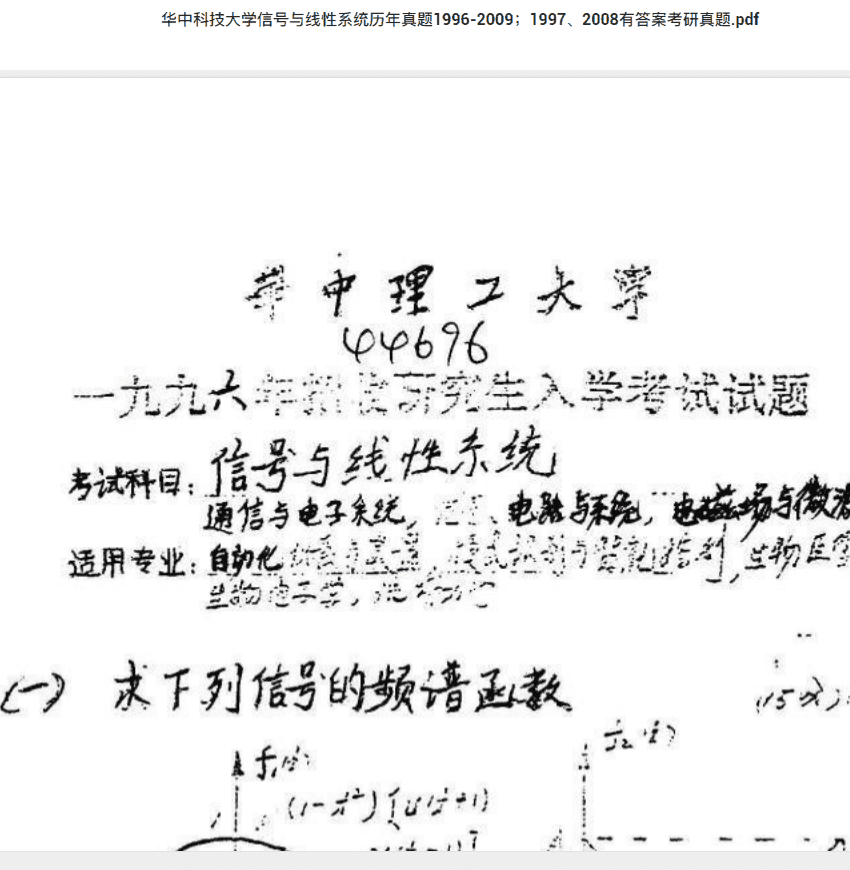 华中科技大学信号与线性系统历年真题1996-2009；1997、2008有答案考研真题.pdf
华中理工大学
44696
一九九六年招收研究生入学考试试题
考试科目：信号与线性系统
通信与电子系统，电路与系统，电磁场与微波
适用专业：自动化 生物医
生物电子学，
(一) 求下列信号的频谱函数 (15分)
f₁(t) f₂(t)
(1-t²)[u(t+1)
1